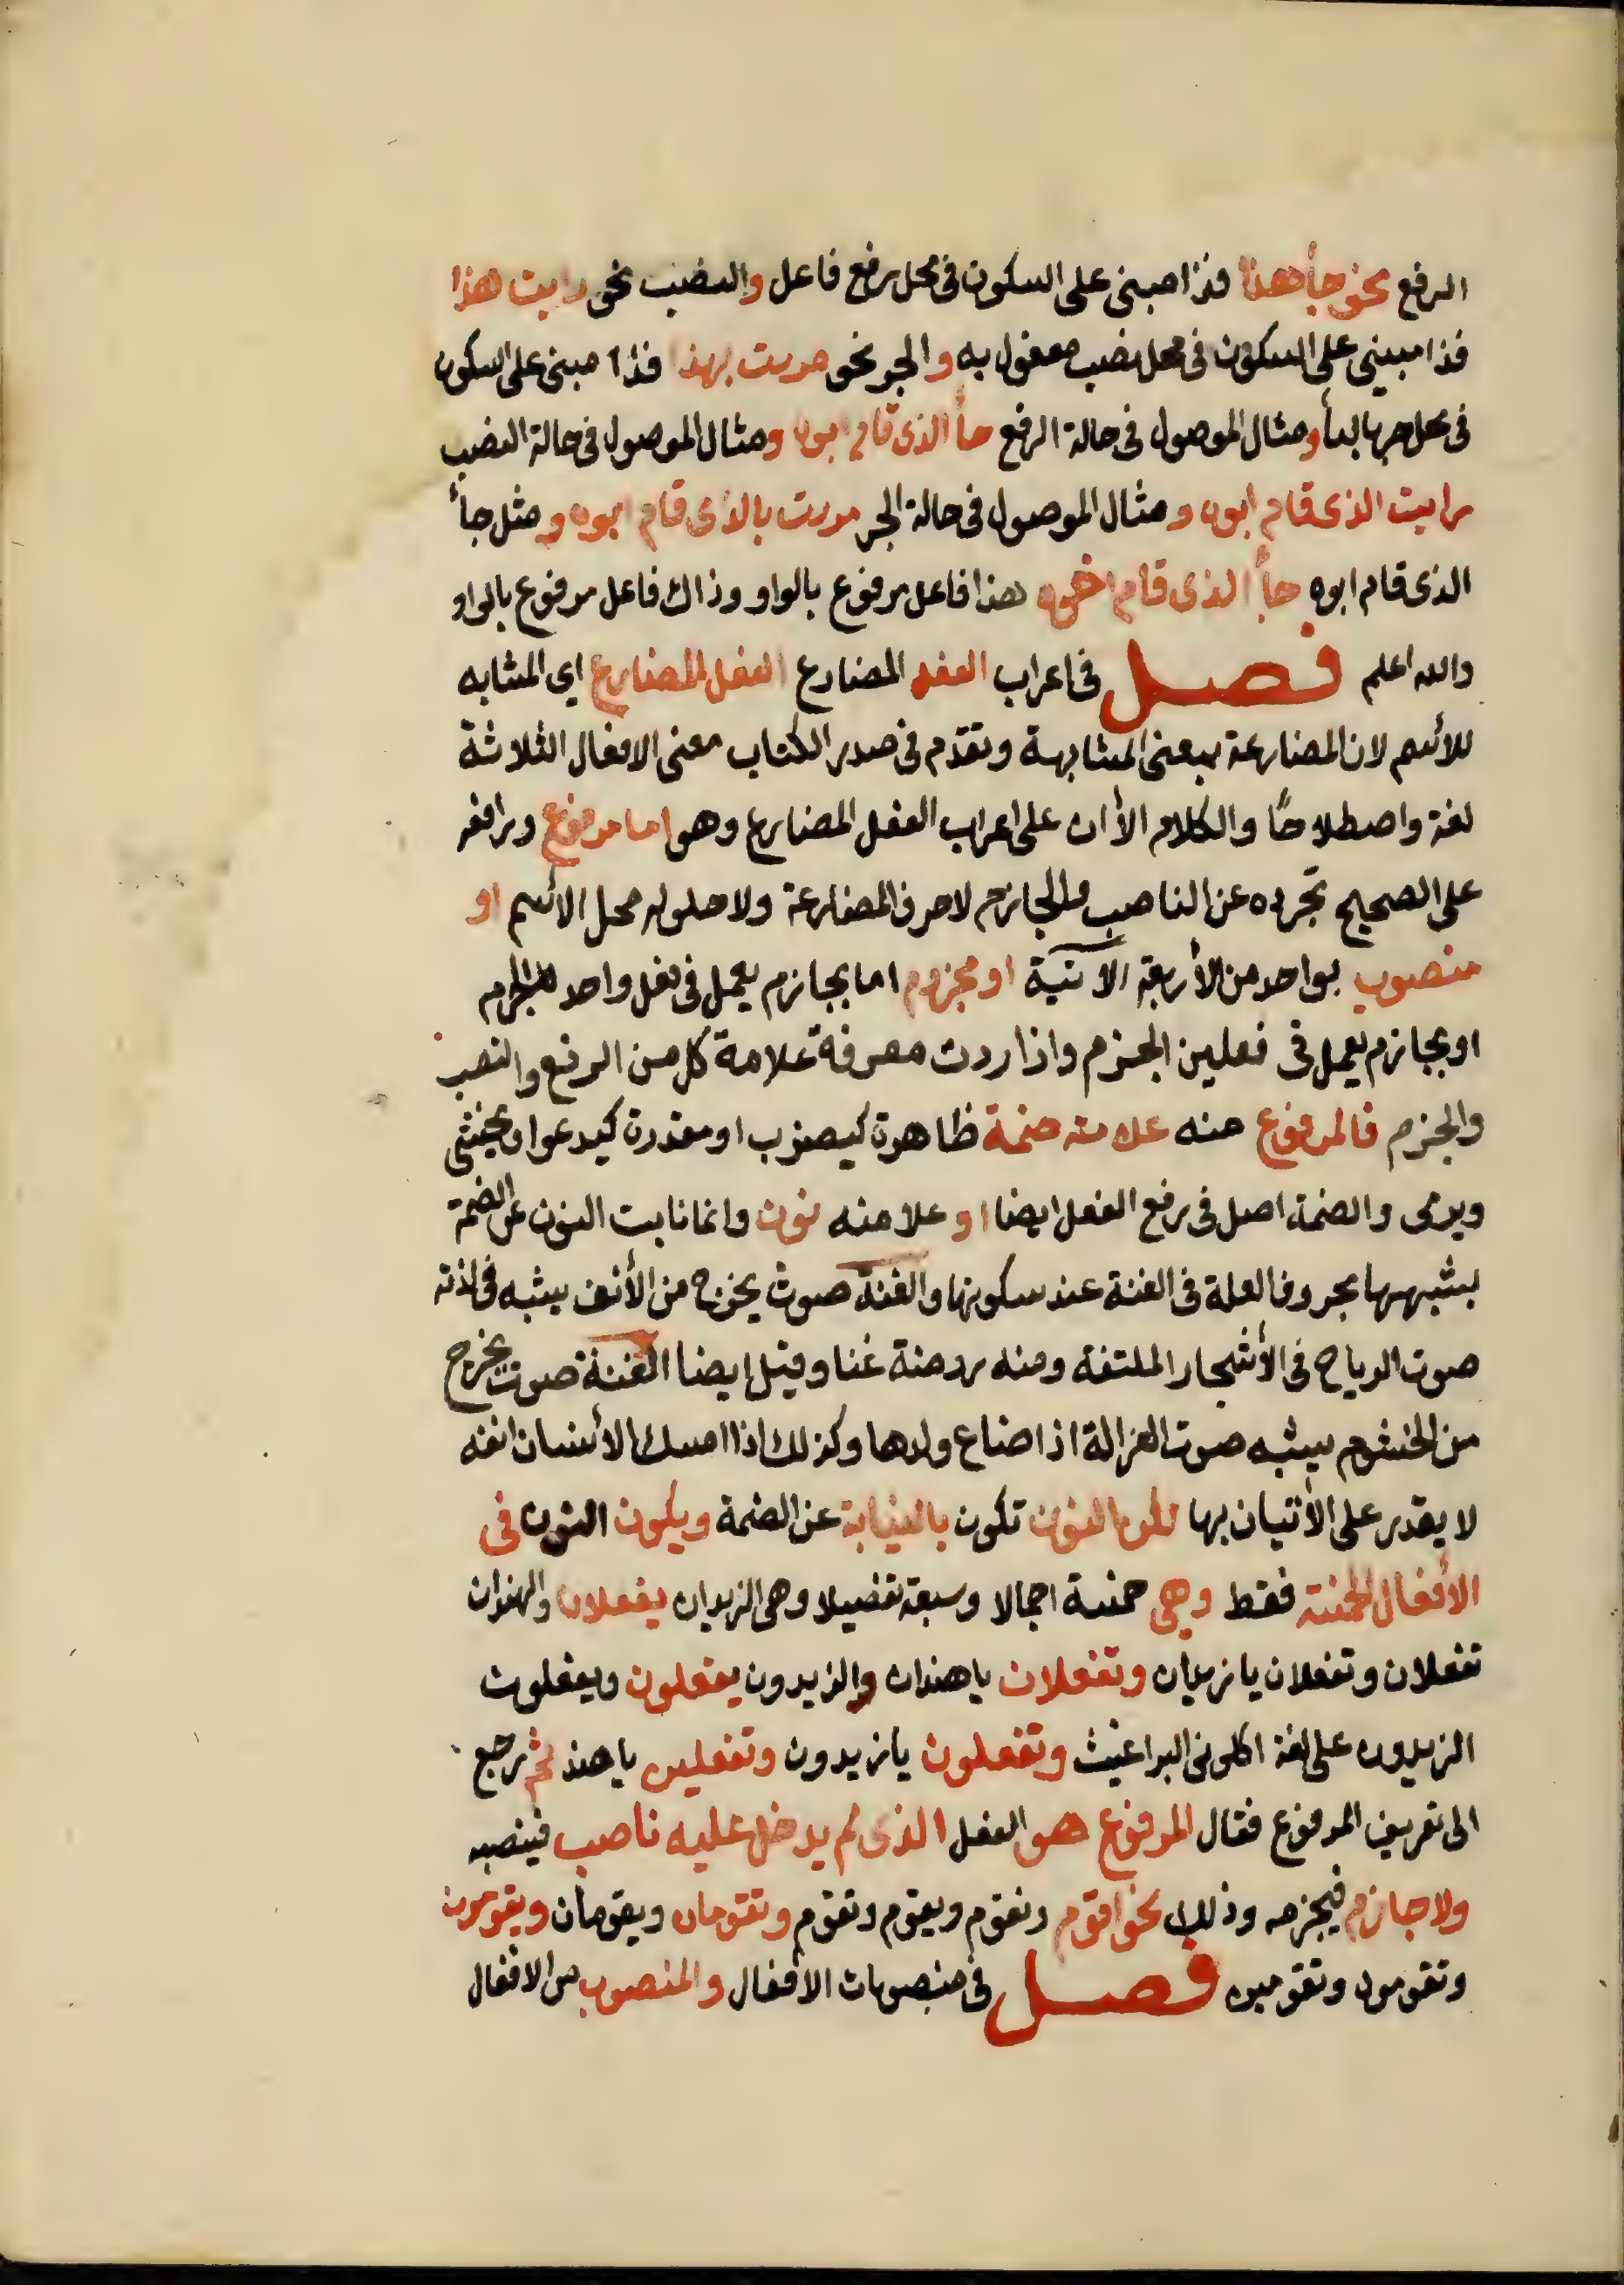 الرفع نحو جأ هذا فذا مبنى على السكون فى محل رفع فاعل والنصب نحو رايت هذا
فذا مبيني على السكون فى محل نصب مفعول به والجر نحو مررت بهذا فذا مبنى على السكون
فى محل جر بالبأ ومثال الموصول فى حالة الرفع جأ الذى قام ابوه ومثال الموصول فى حالة النصب
رايت الذى قام ابوه ومثال الموصول فى حالة الجر مررت بالذى قام ابوه ومثل جأ
الذى قام ابوه جأ الذى قام اخوه هذا فاعل مرفوع بالواو وذاك فاعل مرفوع بالواو
والله اعلم فصل فى اعراب الفعل المضارع الفعل المضارع اي المشابه
للأسم لان المضارعة بمعنى المشابهة وتقدم فى صدر الكتاب معنى الافعال الثلاثة
لغة واصطلاحًا والكلام الأان على اعراب الفعل المضارع وهو اما مرفوع ورافعه
على الصحيح تجرده عن الناصب والجازم لاحرف المضارعة ولا حلوله محل الأسم او
منصوب بواحد من الأربعة الاتية او مجزوم اما بجازم يعمل فى فعل واحد الجزم
او بجازم يعمل فى فعلين الجزم واذا اردت معرفة علامة كل من الرفع والنصب
والجزم فالمرفوع منه علامته ضمة ظاهرة كيضرب او مقدرة كيدعوا ويخشى
ويرمى والضمة اصل فى رفع الفعل ايضا او علامته نون وانما نابت النون عن الضمة
لشبهها بحروف العلة فى الغنة عند سكونها والغنة صوت يخرج من الأنف يشبه فى لذته
صوت الرياح فى الأشجار الملتفة ومنه روضة غنا وقيل ايضا الغنة صوت يخرج
من الخشوم يشبه صوت الغزالة اذا ضاع ولدها وكذلك اذا امسك الأنسان انفه
لا يقدر على الأتيان بها لكن النون تكون بالنيابة عن الضمة ويكون النون فى
الأفعال الخمسة فقط وهى خمسة اجمالا وسبعة تفضيلا وهى الزيدان يفعلان والهندان
تفعلان وتفعلان يا زيدان وتفعلان ياهندان والزيدون يفعلون ويفعلون
الزيدون على لغة اكلونى البراغيث وتفعلون يا زيدون وتفعلين ياهند ثم رجع
الى تعريف المرفوع فقال المرفوع هو الفعل الذى لم يدخل عليه ناصب فينصبه
ولا جازم فيجزمه وذلك نحو اقوم ونقوم ويقوم وتقوم وتقومان ويقومان ويقومون
وتقومون وتقومين فصل فى منصوبات الافعال والمنصوب من الافعال